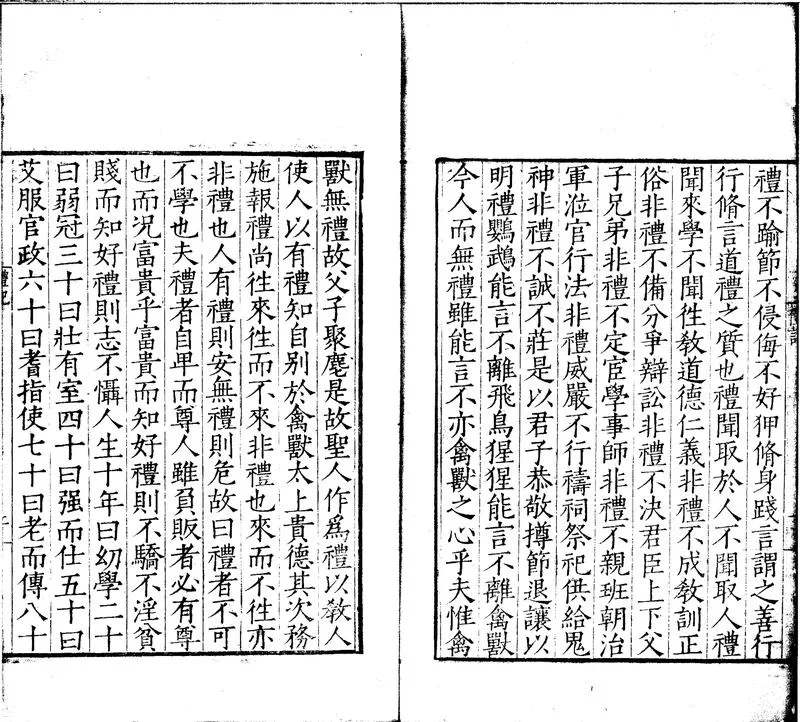 禮不踰節不侵侮不好狎脩身踐言謂之善行
行脩言道禮之質也禮聞取於人不聞取人禮
聞來學不聞徃敎道德仁義非禮不成敎訓正
俗非禮不備分爭辯訟非禮不決君臣上下父
子兄弟非禮不定宦學事師非禮不親班朝治
軍涖官行法非禮威嚴不行禱祠祭祀供給鬼
神非禮不誠不莊是以君子恭敬撙節退讓以
明禮鸚鵡能言不離飛鳥猩猩能言不離禽獸
今人而無禮雖能言不亦禽獸之心乎夫惟禽
獸無禮故父子聚麀是故聖人作爲禮以敎人
使人以有禮知自别於禽獸太上貴德其次務
施報禮尚徃來徃而不來非禮也來而不徃亦
非禮也人有禮則安無禮則危故曰禮者不可
不學也夫禮者自卑而尊人雖負販者必有尊
也而況富貴乎富貴而知好禮則不驕不淫貧
賤而知好禮則志不懾人生十年曰幼學二十
曰弱冠三十曰壯有室四十曰强而仕五十曰
艾服官政六十曰耆指使七十曰老而傳八十
禮記